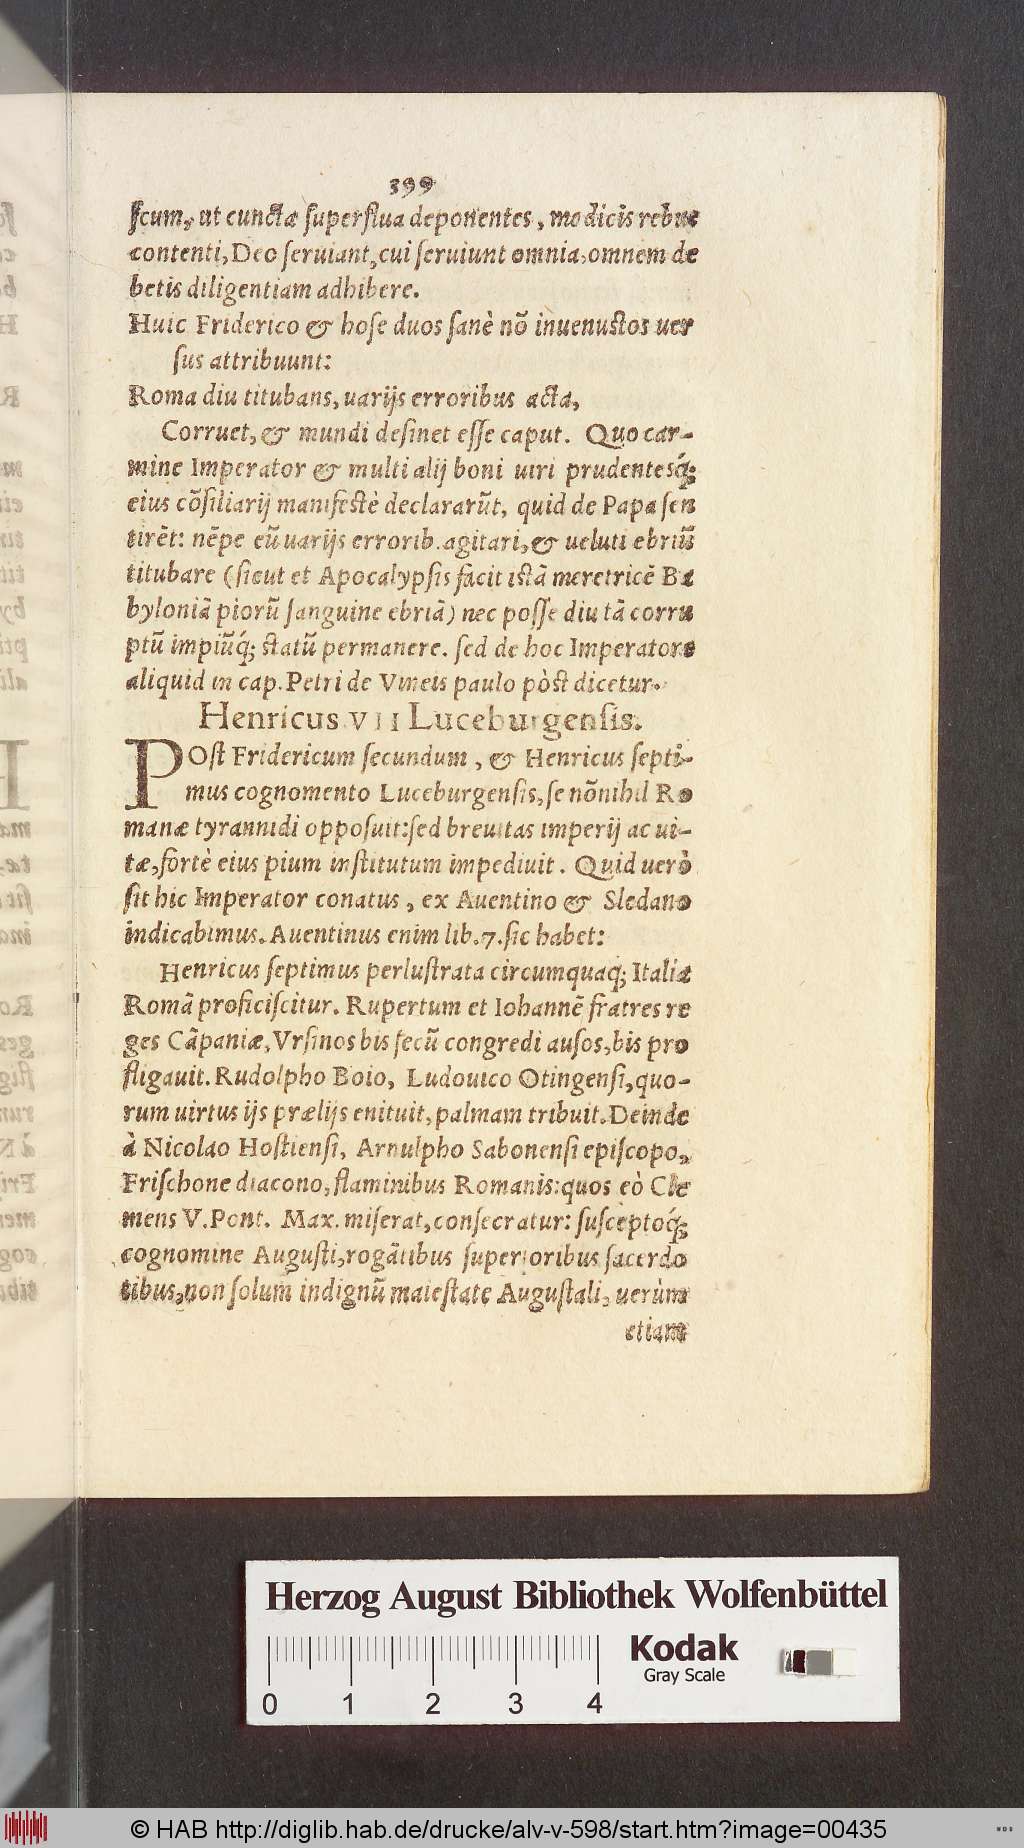 399
scum, ut cunctæ superflua deponentes, modicis rebus
contenti, Deo seruiant, cui seruiunt omnia, omnem de
betis diligentiam adhibere.
Huic Friderico & hose duos sanè nõ inuenustos uer
sus attribuunt:
Roma diu titubans, uarijs erroribus acta,
Corruet, & mundi desinet esse caput. Quo car-
mine Imperator & multi alij boni uiri prudentesq́;
eius cõsiliarij manifestè declararũt, quid de Papa sen
tirẽt: nẽpe eũ uarijs errorib. agitari, & ueluti ebriũ
titubare (sicut et Apocalypsis facit istã meretricẽ Ba
byloniã piorũ sanguine ebriã) nec posse diu tã corru
ptũ impiũq́; statũ permanere. sed de hoc Imperatore
aliquid in cap. Petri de Vineis paulo pòst dicetur.
Henricus VII Luceburgensis.
POst Fridericum secundum, & Henricus septi-
mus cognomento Luceburgensis, se nõnihil Ro
manæ tyrannidi opposuit: sed breuitas imperij ac ui-
tæ, fortè eius pium institutum impediuit. Quid uerò
sit hic Imperator conatus, ex Auentino & Sledano
indicabimus. Auentinus enim lib. 7. sic habet:
Henricus septimus perlustrata circumquaq; Italia
Romã proficiscitur. Rupertum et Iohannẽ fratres re
ges Cãpaniæ, Vrsinos bis secũ congredi ausos, bis pro
fligauit. Rudolpho Boio, Ludouico Otingensi, quo-
rum uirtus ijs prælijs enituit, palmam tribuit. Deinde
à Nicolao Hostiensi, Arnulpho Sabonensi episcopo,
Frischone diacono, flaminibus Romanis: quos eò Cle
mens V. Pont. Max. miserat, consecratur: susceptoq́;
cognomine Augusti, rogãtibus superioribus sacerdo
tibus, non solum indignũ maiestate Augustali, uerùm
etiam
Herzog August Bibliothek Wolfenbüttel
0 1 2 3 4
Kodak
Gray Scale
© HAB http://diglib.hab.de/drucke/alv-v-598/start.htm?image=00435